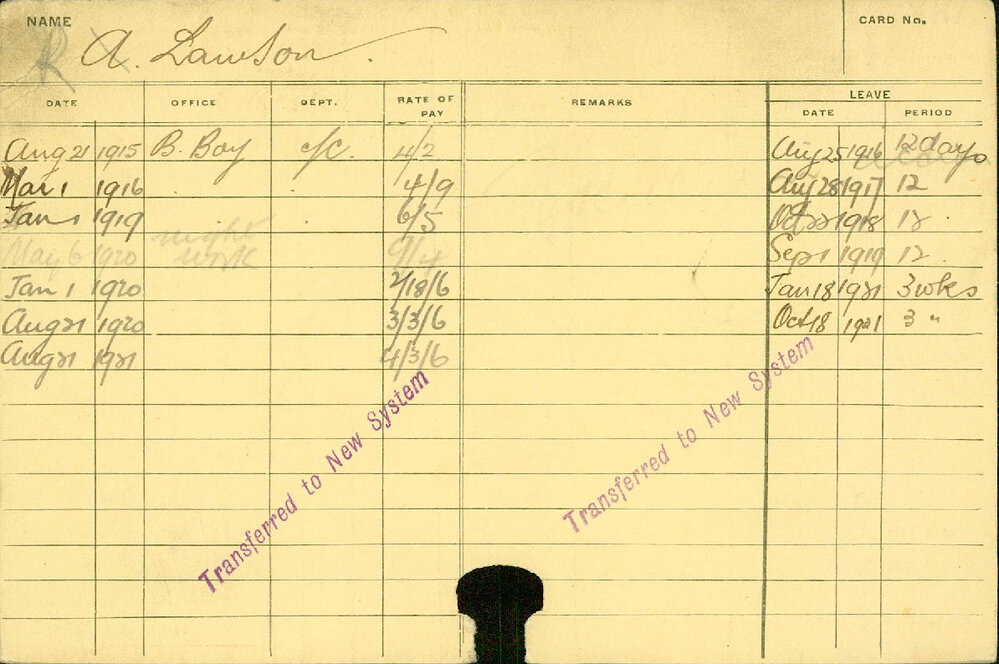 NAME
CARD No.
A. Lawson.
DATE OFFICE DEPT. RATE OF PAY REMARKS LEAVE
DATE PERIOD
Aug 21 1915 B. Boy c/c. 4/2 Aug 25 1916 12 days
Mar 1 1916 4/9 Aug 28 1917 12
Jan 1 1919 6/5 Oct 22 1918 12
May 6 1920 night work 9/4 Sep 1 1919 12
Jan 1 1920 2/18/6 Jan 18 1921 3 wks
Aug 21 1920 3/3/6 Oct 18 1921 3 "
Aug 21 1921 4/3/6
Transferred to New System
Transferred to New System